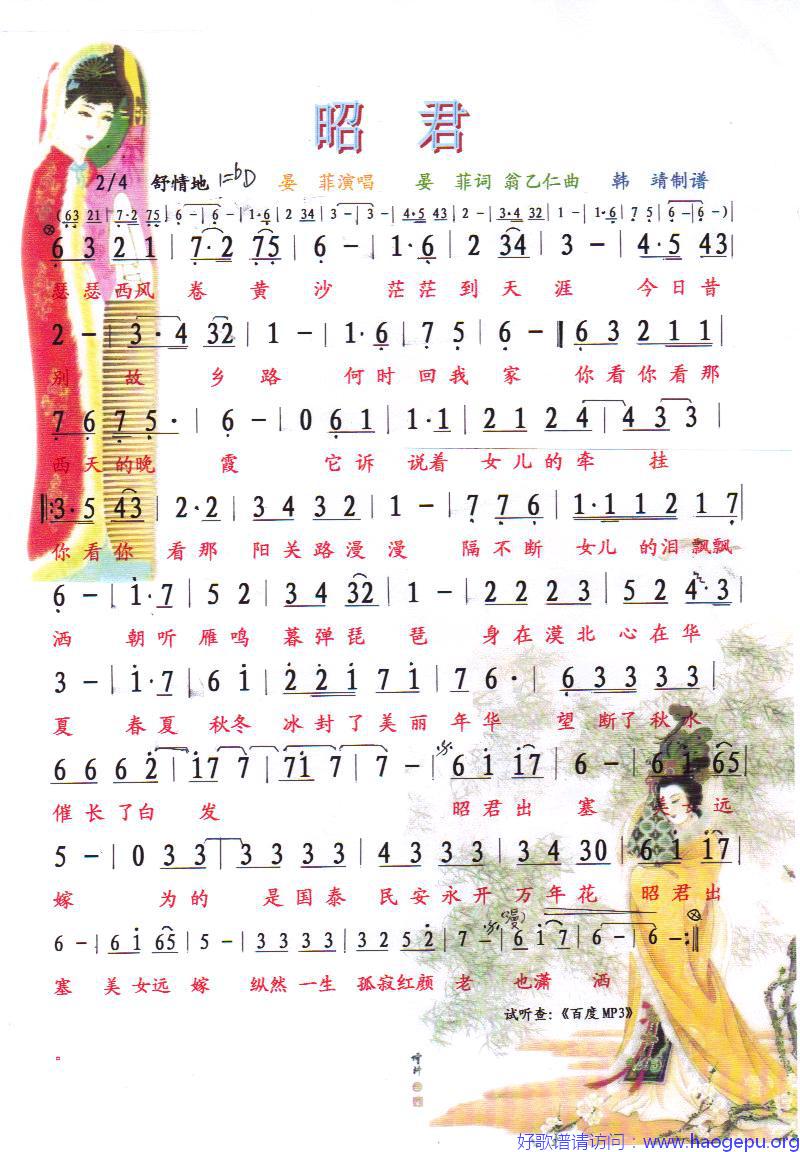 昭 君
2/4 舒情地 1=bD 晏 菲演唱 晏 菲词 翁乙仁曲 韩 靖制谱
(63 21 | 7·2 75 | 6 - | 6 - | 1·6 | 2 34 | 3 - | 3 - | 4·5 43 | 2 - | 3·4 32 | 1 - | 1·6 | 7 5 | 6 - | 6 - |)
6 3 2 1 | 7·2 75 | 6 - | 1·6 | 2 34 | 3 - | 4·5 43 |
瑟瑟西风 卷 黄 沙 茫茫到天涯 今日昔
2 - | 3·4 32 | 1 - | 1·6 | 7 5 | 6 - || 6 3 2 1 1 |
别 故 乡路 何时回我家 你看你看那
7 6 7 5· | 6 - | 0 6 1 | 1·1 | 2 1 2 4 | 4 3 3 |
西天的晚 霞 它诉 说着 女儿的牵 挂
||:3·5 43 | 2·2 | 3 4 3 2 | 1 - | 7 7 6 | 1·1 1 2 1 7 |
你看你 看那 阳关路漫漫 隔不断 女儿 的泪飘飘
6 - | 1·7 | 5 2 | 3 4 32 | 1 - | 2 2 2 3 | 5 2 4·3 |
洒 朝听雁鸣暮弹琵 琶 身在漠北心在华
3 - | 1·7 | 6 1 | 2 2 1 7 1 | 7 6· | 6 3 3 3 3 |
夏 春夏 秋冬 冰封了美丽 年华 望断了秋水
6 6 6 2 | 17 7 | 71 7 | 7 - | 6 1 17 | 6 - | 6 1 65 |
催长了白 发 昭君出 塞 美女远
5 - | 0 3 3 | 3 3 3 3 | 4 3 3 3 | 3 4 30 | 6 1 17 |
嫁 为的 是国泰 民安永开 万年花 昭君出
(慢)
6 - | 6 1 65 | 5 - | 3 3 3 3 | 3 2 5 2 | 7 - | 6 1 7 | 6 - | 6 - :||
塞 美女远 嫁 纵然一生 孤寂红颜 老 也潇 洒
试听查:《百度 MP3》
好歌谱请访问：www.haogepu.org